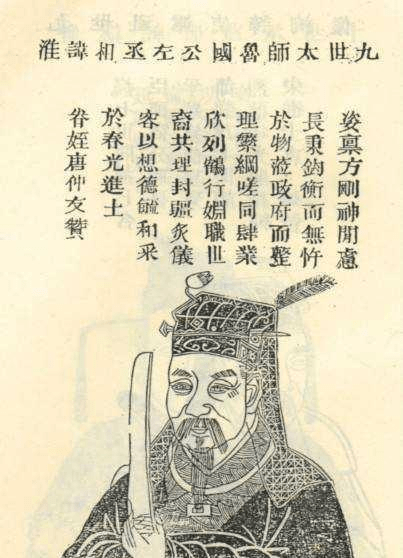 九世太師魯國公左丞相諱淮
姿稟方剛神閒慮
長秉鈞衡而無忤
於物蒞政府而整
理繁綱嗟同肆業
欣列鶴行淵職世
裔共理封疆炙儀
容以想德毓和采
於春光進士
眷姪唐仲友贊